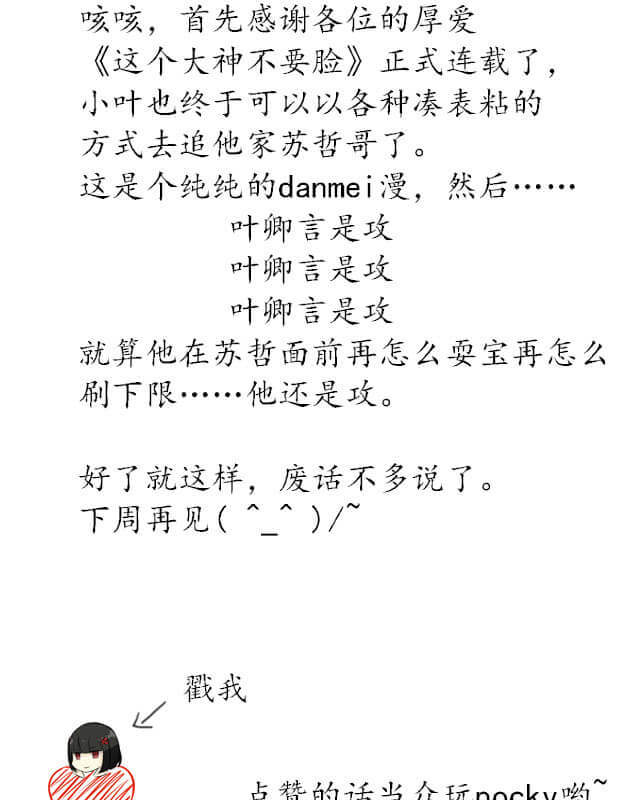 咳咳，首先感谢各位的厚爱
《这个大神不要脸》正式连载了，
小叶也终于可以以各种凑表粘的
方式去追他家苏哲哥了。
这是个纯纯的danmei漫，然后……
叶卿言是攻
叶卿言是攻
叶卿言是攻
就算他在苏哲面前再怎么耍宝再怎么
刷下限……他还是攻。
好了就这样，废话不多说了。
下周再见( ^_^ )/~
戳我
点赞的话当众玩pocky哟~